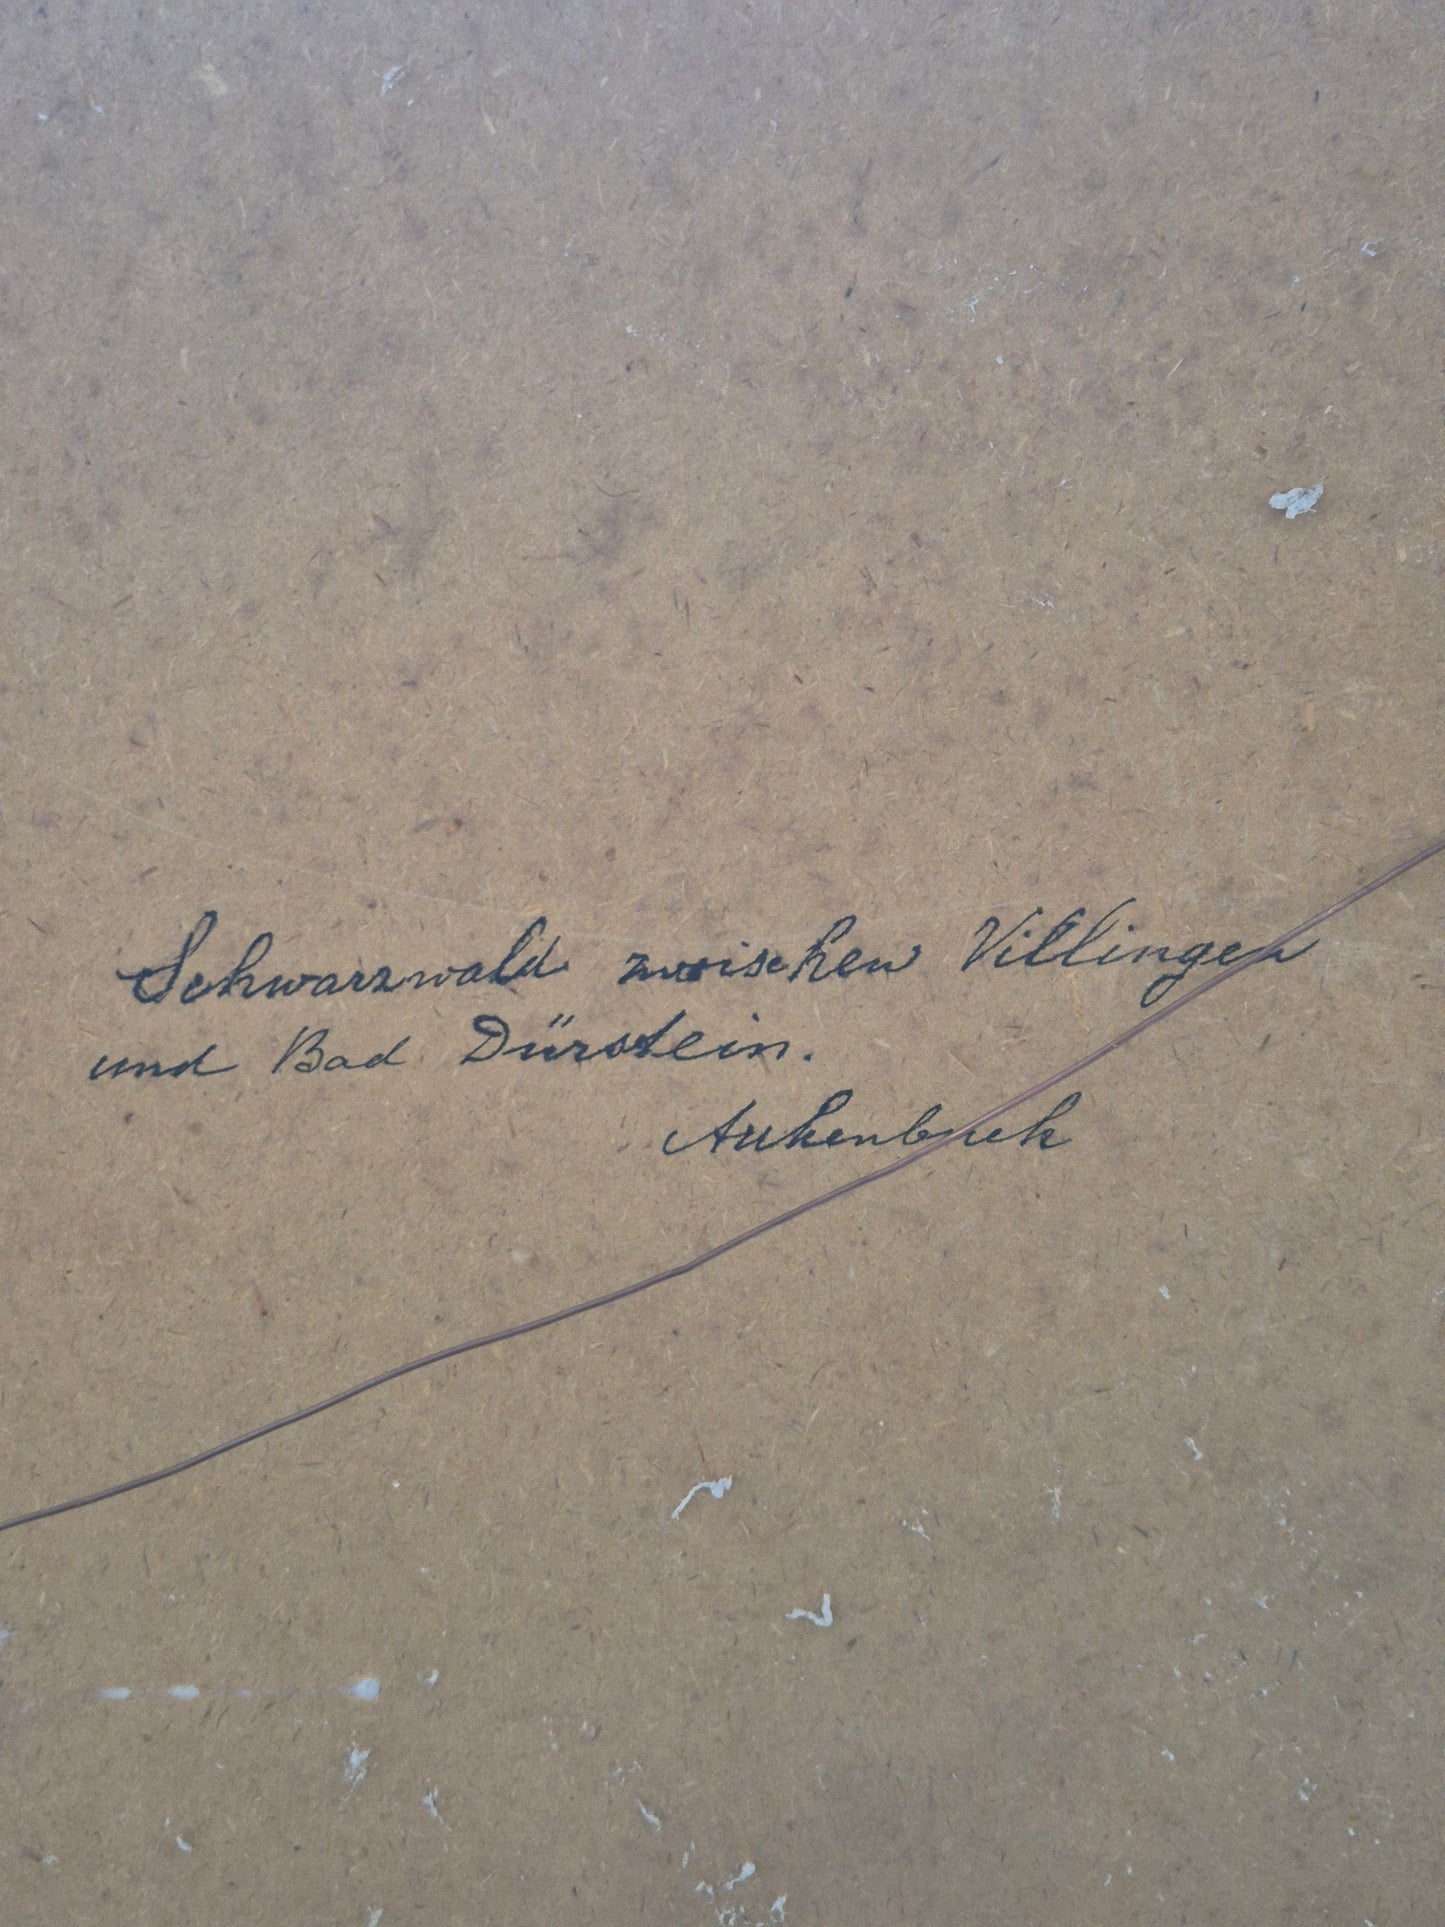 Schwarzwald zwischen Villingen
und Bad Dürstein.
Aukenbuck